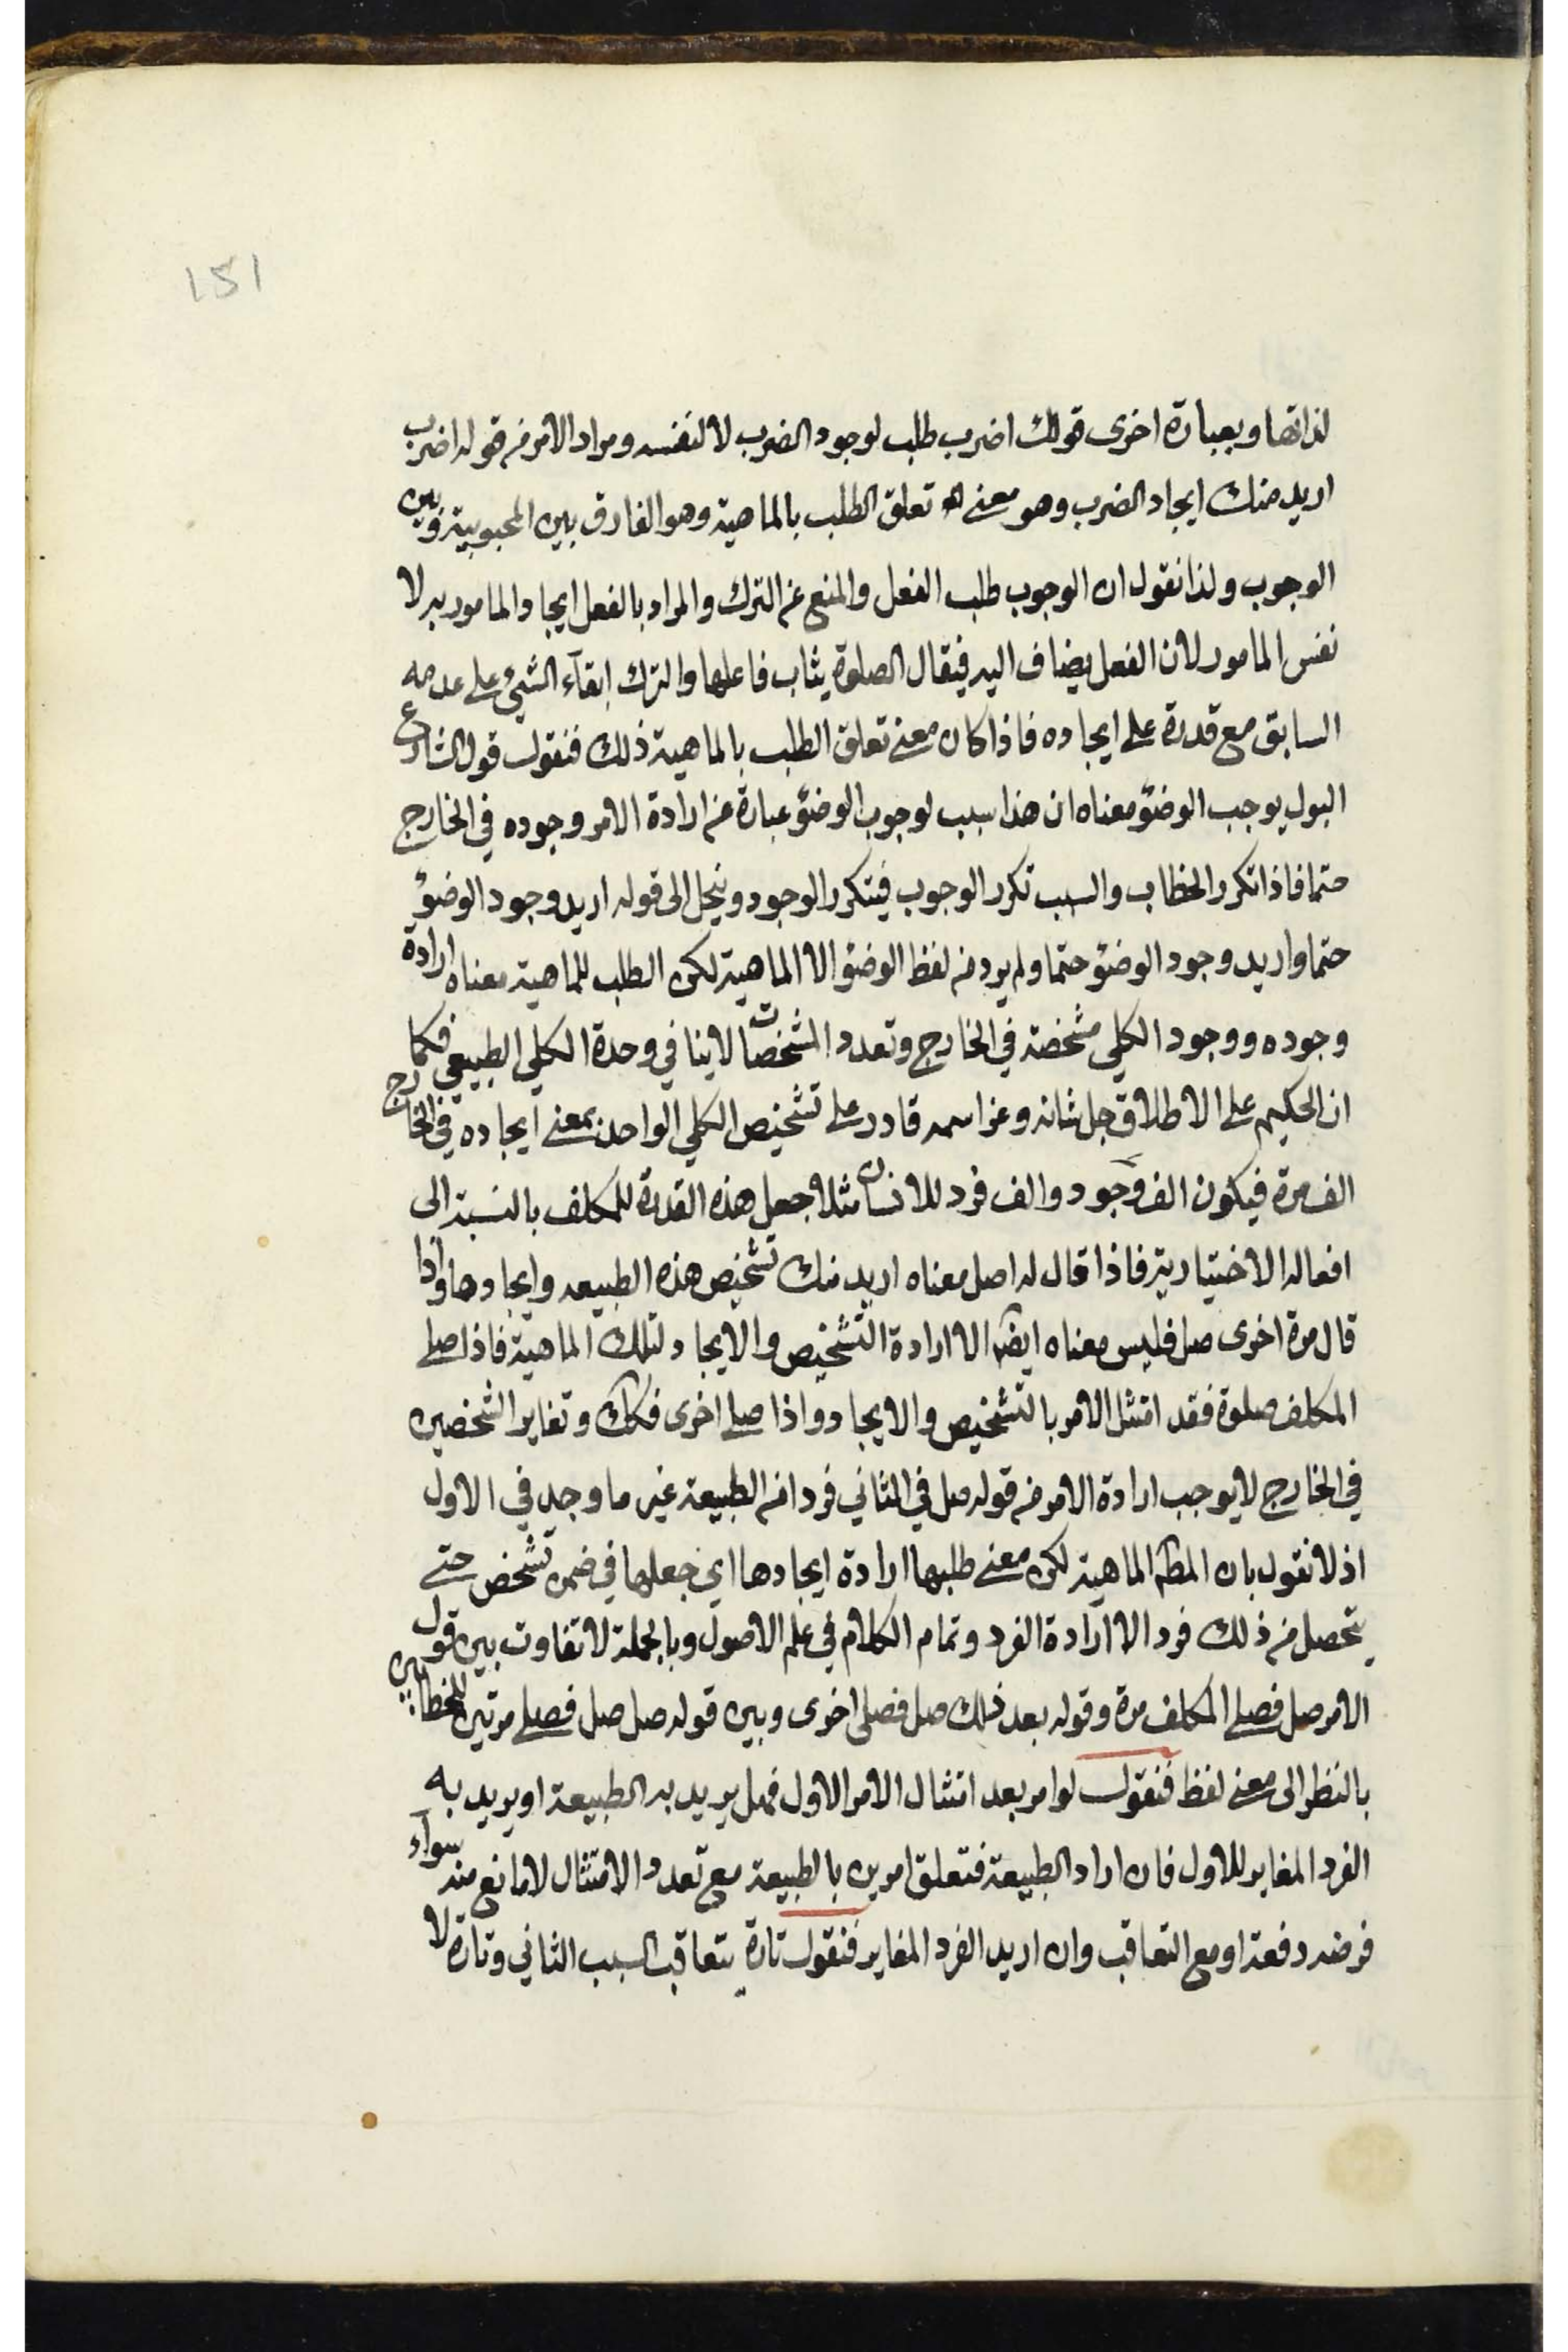 151
لذاتها وبعبارة اخرى قولك اضرب طلب لوجود الضرب لا لنفسه ومراد الامر من قوله اضرب
اريد منك ايجاد الضرب وهو معنى تعلق الطلب بالماهية وهو الفارق بين المحبوبية وبين
الوجوب ولذا نقول ان الوجوب طلب الفعل والمنع عن الترك والمراد بالفعل ايجاد المامور به لا
نفس المامور لان الفعل يضاف اليه فيقال الصلوة يثاب فاعلها والترك ابقآء الشيئ على عدمه
السابق مع قدرة على ايجاده فاذا كان معنى تعلق الطلب بالماهية ذلك فنقول قول الشارع
البول يوجب الوضؤ معناه ان هذا سبب لوجوب الوضؤ عبارة عن ارادة الامر وجوده في الخارج
حتما فاذا تكرر الخطاب والسبب تكرر الوجوب فيتكرر الوجود وينحل الى قوله اريد وجود الوضؤ
حتما واريد وجود الوضؤ حتما ولم يرد من لفظ الوضؤ الا الماهية لكن الطلب للماهية معناه ارادة
وجوده ووجود الكلي مشخصة في الخارج وتعدد المشخصات لا ينافي وحدة الكلي الطبيعي فكما
ان الحكيم على الاطلاق جل شانه وعز اسمه قادر على تشخيص الكلي الواحد بمعنى ايجاده في الخارج
الف مرة فيكون الف وجود والف فرد للانسان مثلا جعل هذه القدرة للمكلف بالنسبة الى
افعاله الاختيارية فاذا قال له اصل معناه اريد منك تشخيص هذه الطبيعه وايجادها واذا
قال مرة اخرى صل فليس معناه ايضا الا ارادة التشخيص والايجاد لتلك الماهية فاذا صلى
المكلف صلوة فقد امتثل الامر بالتشخيص والايجاد واذا صلى اخرى فكك وتغاير الشخصين
في الخارج لا يوجب ارادة الامر من قوله صل في الثاني فردا من الطبيعة غير ما وجد في الاول
اذ لا نقول بان المطه الماهية لكن معنى طلبها ارادة ايجادها اي جعلها في ضمن تشخص حتى
يتحصل من ذلك فرد الا ارادة الفرد وتمام الكلام في علم الاصول وبالجملة لا تفاوت بين قول
الامر صل فصلى المكلف مرة وقوله بعد ذلك صل فصلى اخرى وبين قوله صل صل فصلى مرتين للخطابين
بالنظر الى معنى لفظ فنقول لو امر بعد امتثال الامر الاول فهل يريد به الطبيعة او يريد به
الفرد المغاير للاول فان اراد الطبيعة فتعلق امرين بالطبيعة مع تعدد الامتثال لا مانع منه سوآء
فرضه دفعة او مع التعاقب وان اريد الفرد المغاير فنقول تارة يتعاقب السبب الثاني وتارة لا